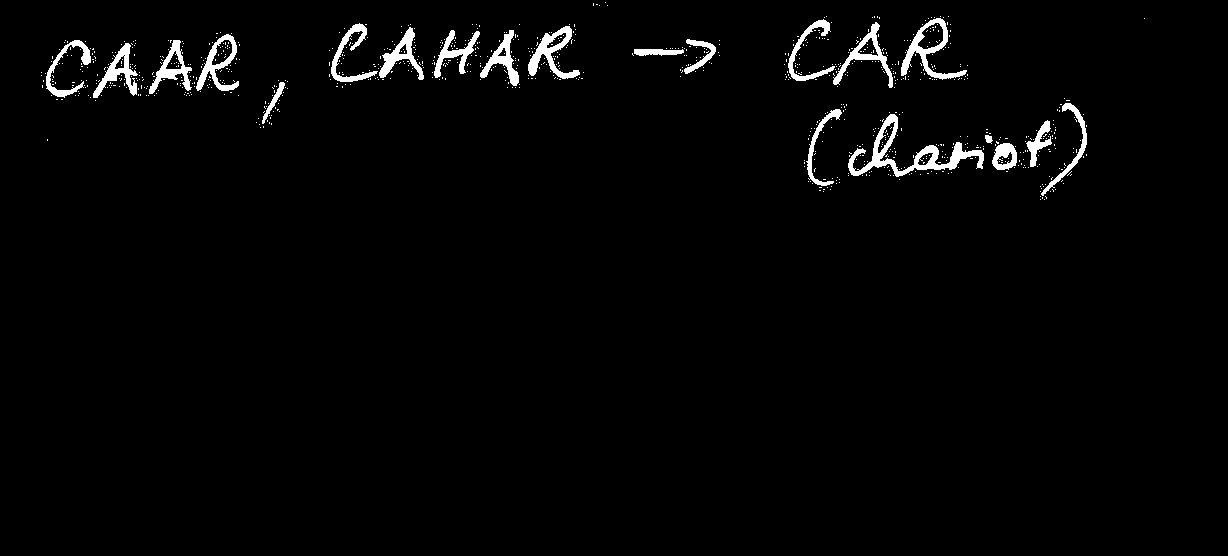 CAAR, CAHAR → CAR
(chariot)